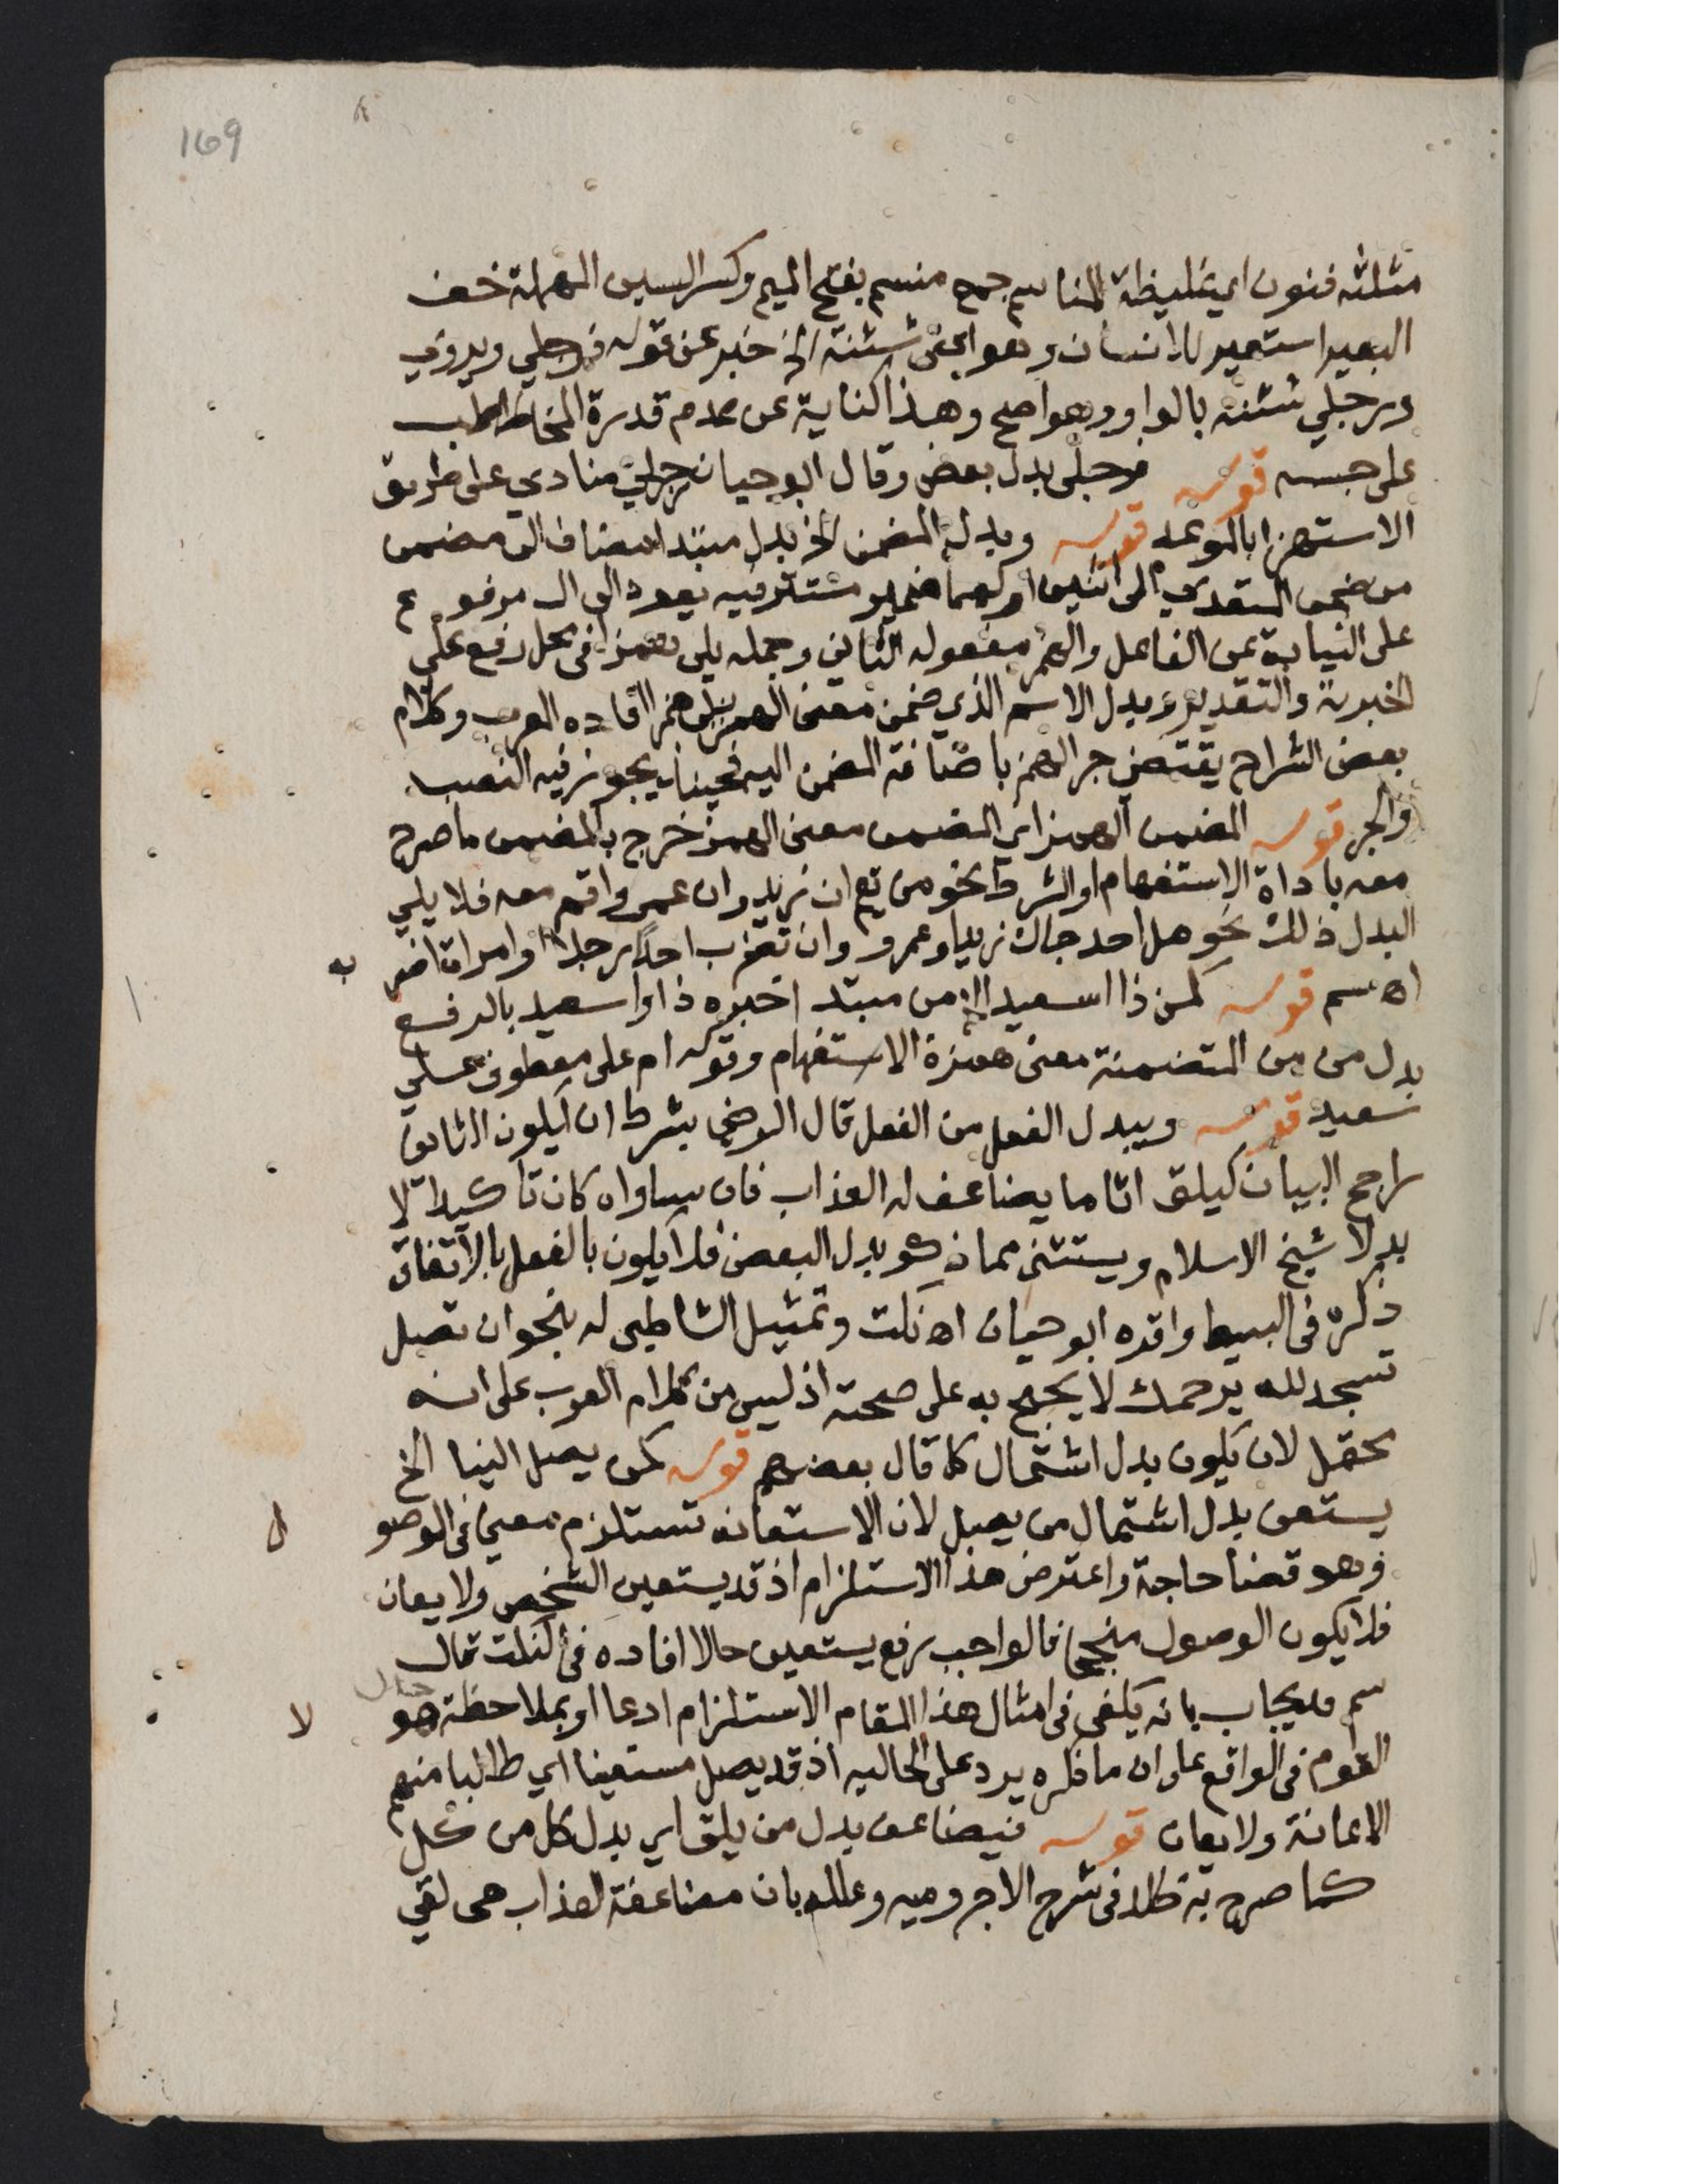 169
مثلثه فنون اي غليظة المناسم جمع منسم بفتح الميم وكسر السين المهملة خف
البعير استعير للانسان وهو اعني شثنة الخ خبر عن قوله فرجلي ويروي
ورجلي شثنة بالواو وهو اصح وهذا كناية عن عدم قدرة المخاطب
على حبسه قوله فرجلي بدل بعض وقال ابو حيان رجلي منادي على طريق
الاستهزا بالموعد قوله وبدل المضمن الخ بدل مبتدا مضاف الى مضمن
من ضمن المتعدي الى اثنين اولهما ضمير مستتر فيه يعود الى ال مرفوع
على النيابة عن الفاعل والهمز مفعوله الثاني وجملة يلي همزا في محل رفع على
الخبرية والتقدير وبدل الاسم الذي ضمن معنى الهمز يلي همزا افاده المعرب وكلام
بعض الشراح يقتضي جر الهمز باضافة المضمن اليه فحينئذ يجوز فيه النصب
والجر قوله المضمن الهمز اي المضمن معنى الهمز خرج بالمضمن ما صرح
معه باداة الاستفهام او الشرط نحو من تع ان زيد وان عمر واقم معه فلا يلي
البدل ذلك نحو هل احد جاك زيد او عمرو وان تضرب احدا رجلا او امراة اضر به
اه سم قوله كمن ذا اسعيد الخ من مبتدا خبره ذا واسعيد بالرفع
بدل من من المتضمنة معنى همزة الاستفهام وقوله ام علي معطوف على
سعيد قوله ويبدل الفعل من الفعل قال الرضي بشرط ان يكون الثاني
راجح البيان كيلق اثاما يضاعف له العذاب فان ساواه كان تاكيدا لا
بدلا شيخ الاسلام ويستثنى مما ذكر بدل البعض فلا يكون بالفعل بالاتفاق
ذكره في البسيط واقره ابو حيان اه نكت وتمثيل الشاطبي له بنحو ان تصل
تسجد لله يرحمك لا يحتج به على صحته اذ ليس من كلام العرب على انه
محتمل لان يكون بدل اشتمال كما قال بعضهم قوله كمن يصل الينا الخ
يستعن بدل اشتمال من يصل لان الاستعانة تستلزم معنى في الوصو ل
وهو قضا حاجة واعترض هذا الاستلزام اذ قد يستعين الشخص ولا يعان
فلا يكون الوصول منجحا فالواجب رفع يستعين حالا افاده في النكت قال
سم وقد يجاب بانه يكفي في امثال هذا المقام الاستلزام ادعا او بملاحظة حال هو لا
القوم في الواقع على ان ما ذكره يرد على الحالية اذ قد يصل مستعينا اي طالبا منهم
الاعانة ولا يعان قوله فيضاعف بدل من يلق اي بدل كل من كل
كما صرح به خالد في شرح الاجرومية وعلله بان مضاعفة العذاب هي لقي